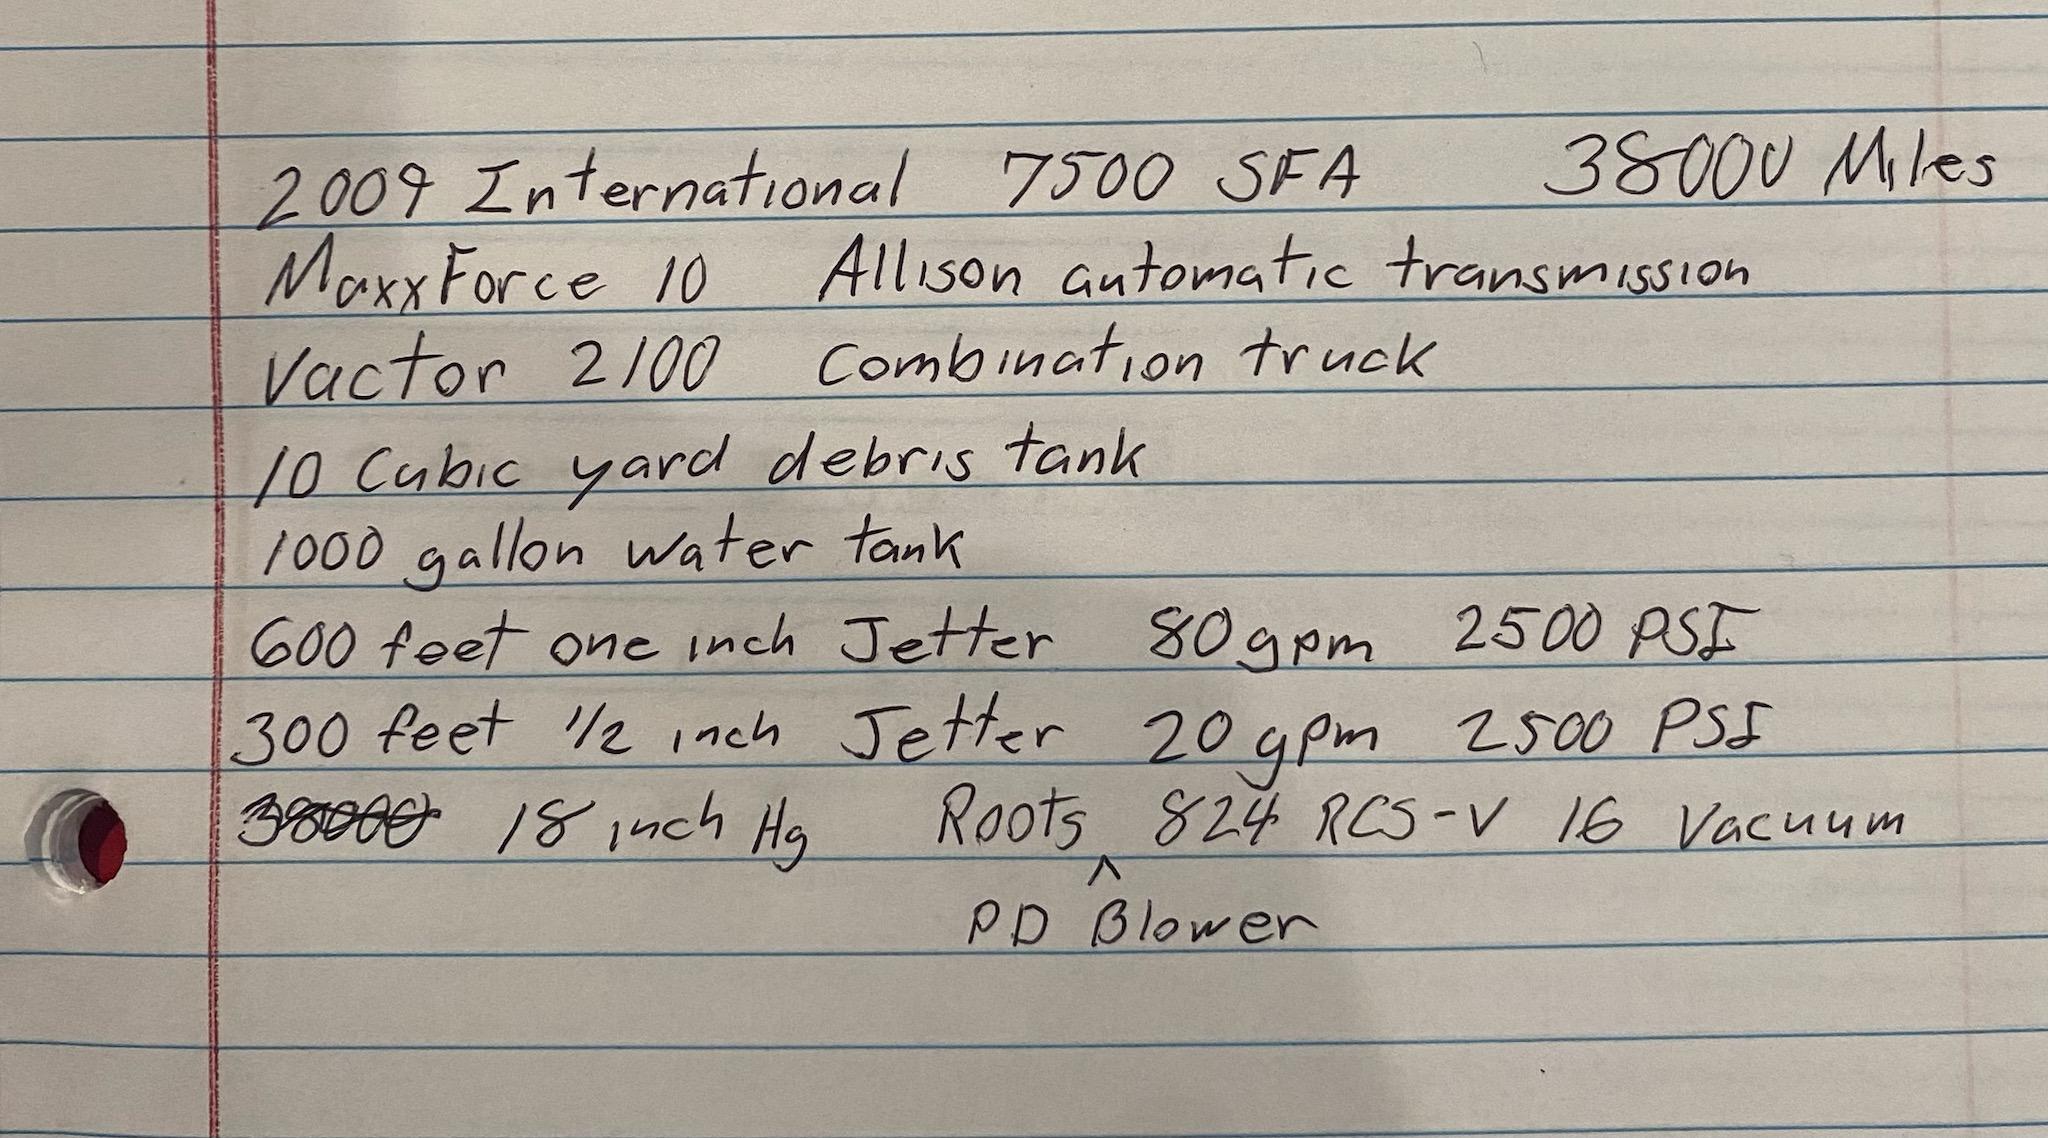 2009 International 7500 SFA 38000 Miles
MaxxForce 10 Allison automatic transmission
Vactor 2100 Combination truck
10 Cubic yard debris tank
1000 gallon water tank
600 feet one inch Jetter 80 gpm 2500 PSI
300 feet 1/2 inch Jetter 20 gpm 2500 PSI
38000 18 inch Hg Roots ^ 824 RCS-V 16 Vacuum
PD Blower